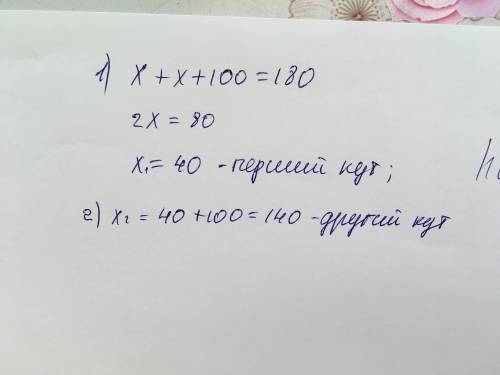 1) x + x + 100 = 180
2x = 80
x₁ = 40 - перший кут;
2) x₂ = 40 + 100 = 140 - другий кут